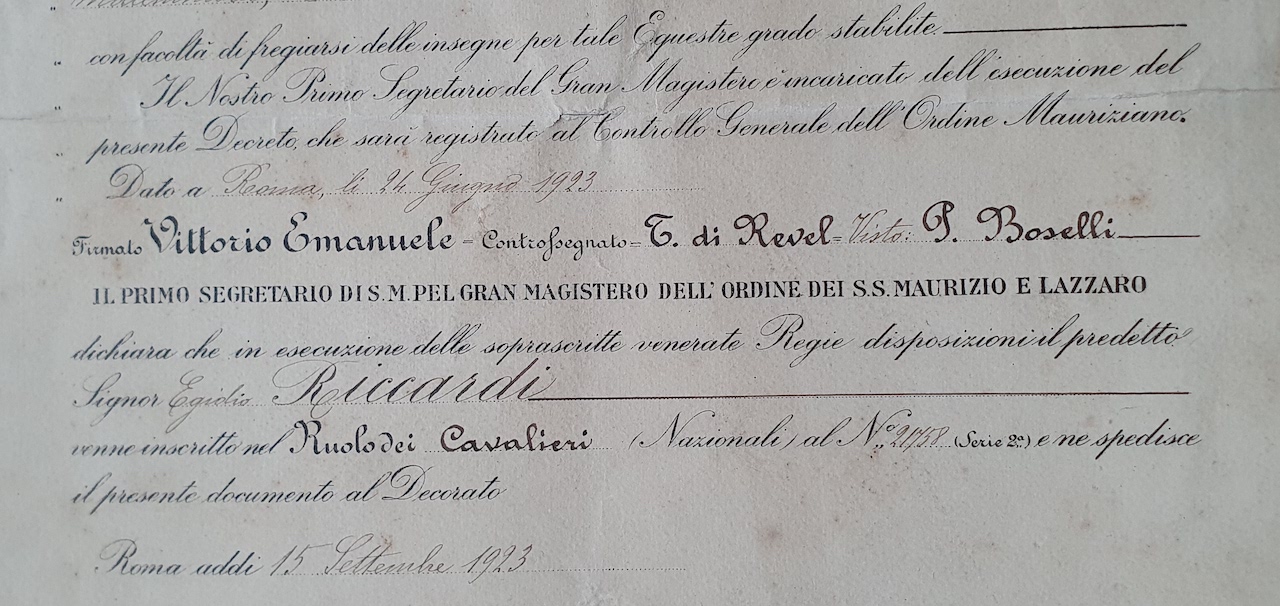 con facoltà di fregiarsi delle insegne per tale Equestre grado stabilite.
Il Nostro Primo Segretario del Gran Magistero è incaricato dell'esecuzione del
presente Decreto, che sarà registrato al Controllo Generale dell'Ordine Mauriziano.
Dato a Roma, li 24 Giugno 1923
Firmato Vittorio Emanuele = Controssegnato = T. di Revel = Visto: P. Boselli
IL PRIMO SEGRETARIO DI S. M. PEL GRAN MAGISTERO DELL'ORDINE DEI S.S. MAURIZIO E LAZZARO
dichiara che in esecuzione delle soprascritte venerate Regie disposizioni il predetto
Signor Egidio Riccardi
venne inscritto nel Ruolo dei Cavalieri (Nazionali) al N.° (Serie 2.a) e ne spedisce
il presente documento al Decorato
Roma addi 15 Settembre 1923